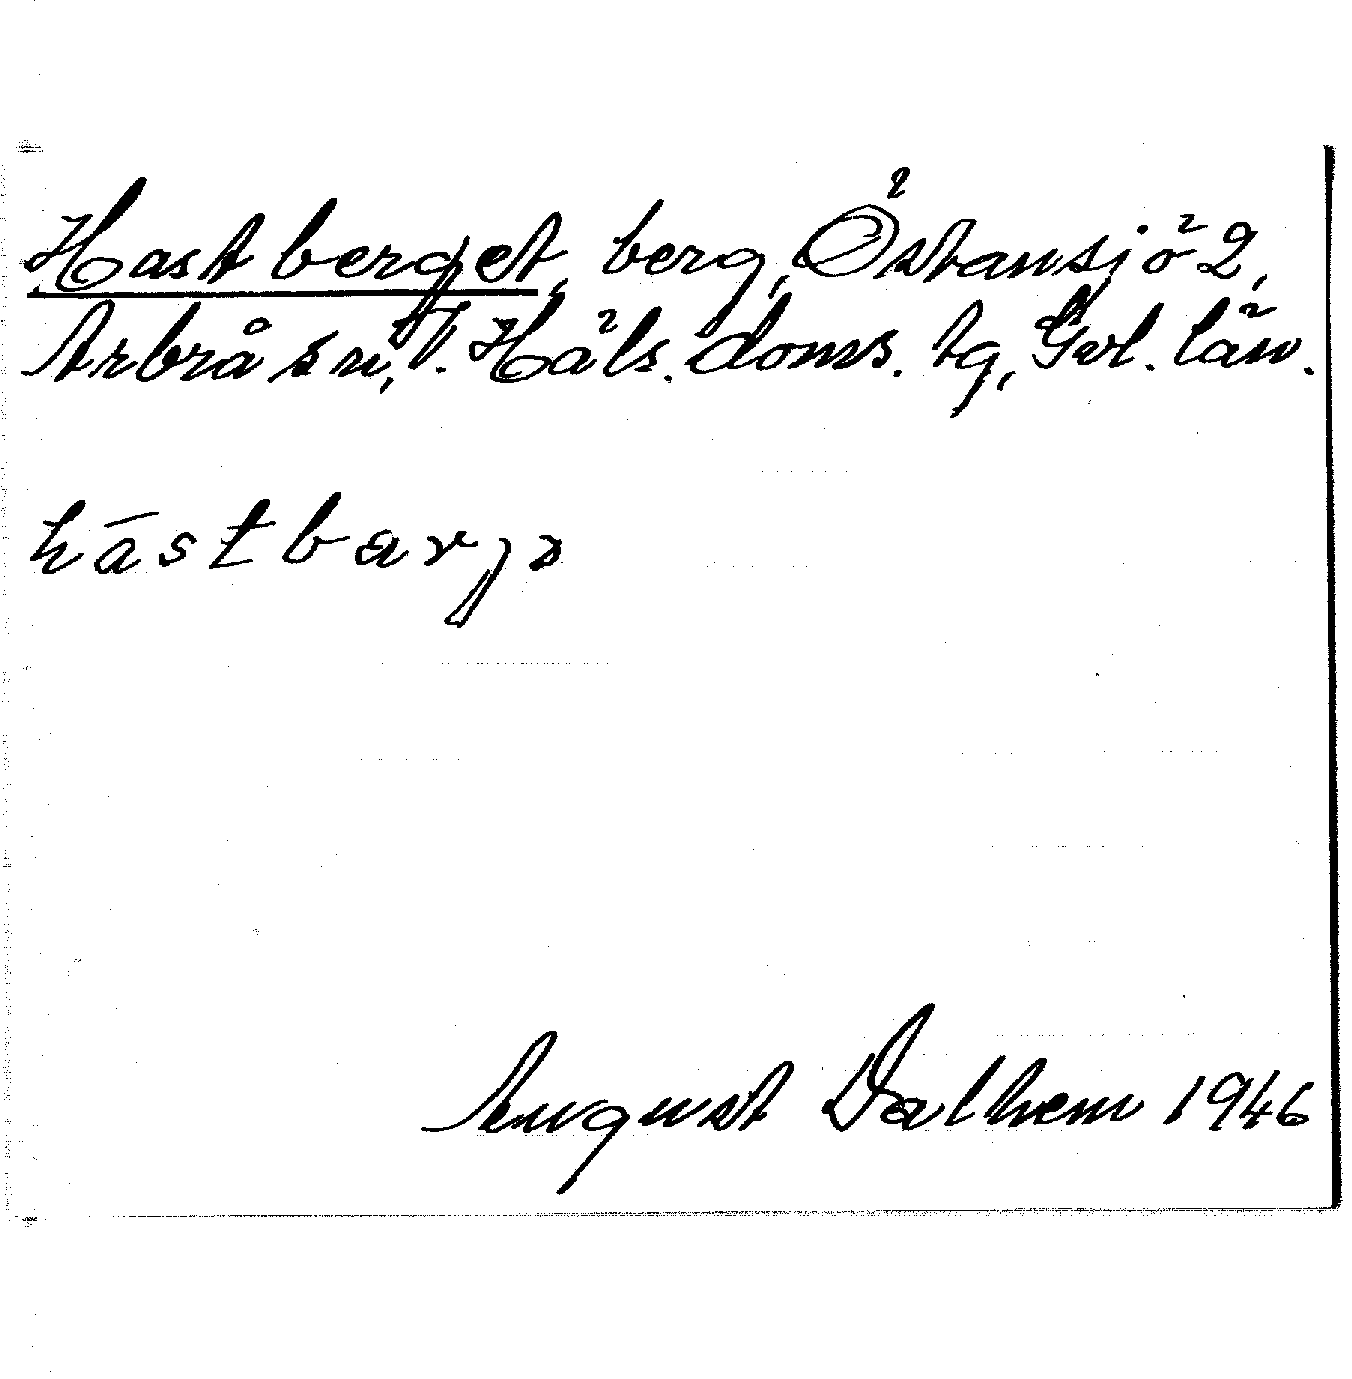 Hastberget, berg, Östansjö 2,
Arbrå sn, V. Häls. doms. tg, Gvl. län.
hāstbarjə
August Dalhem 1946